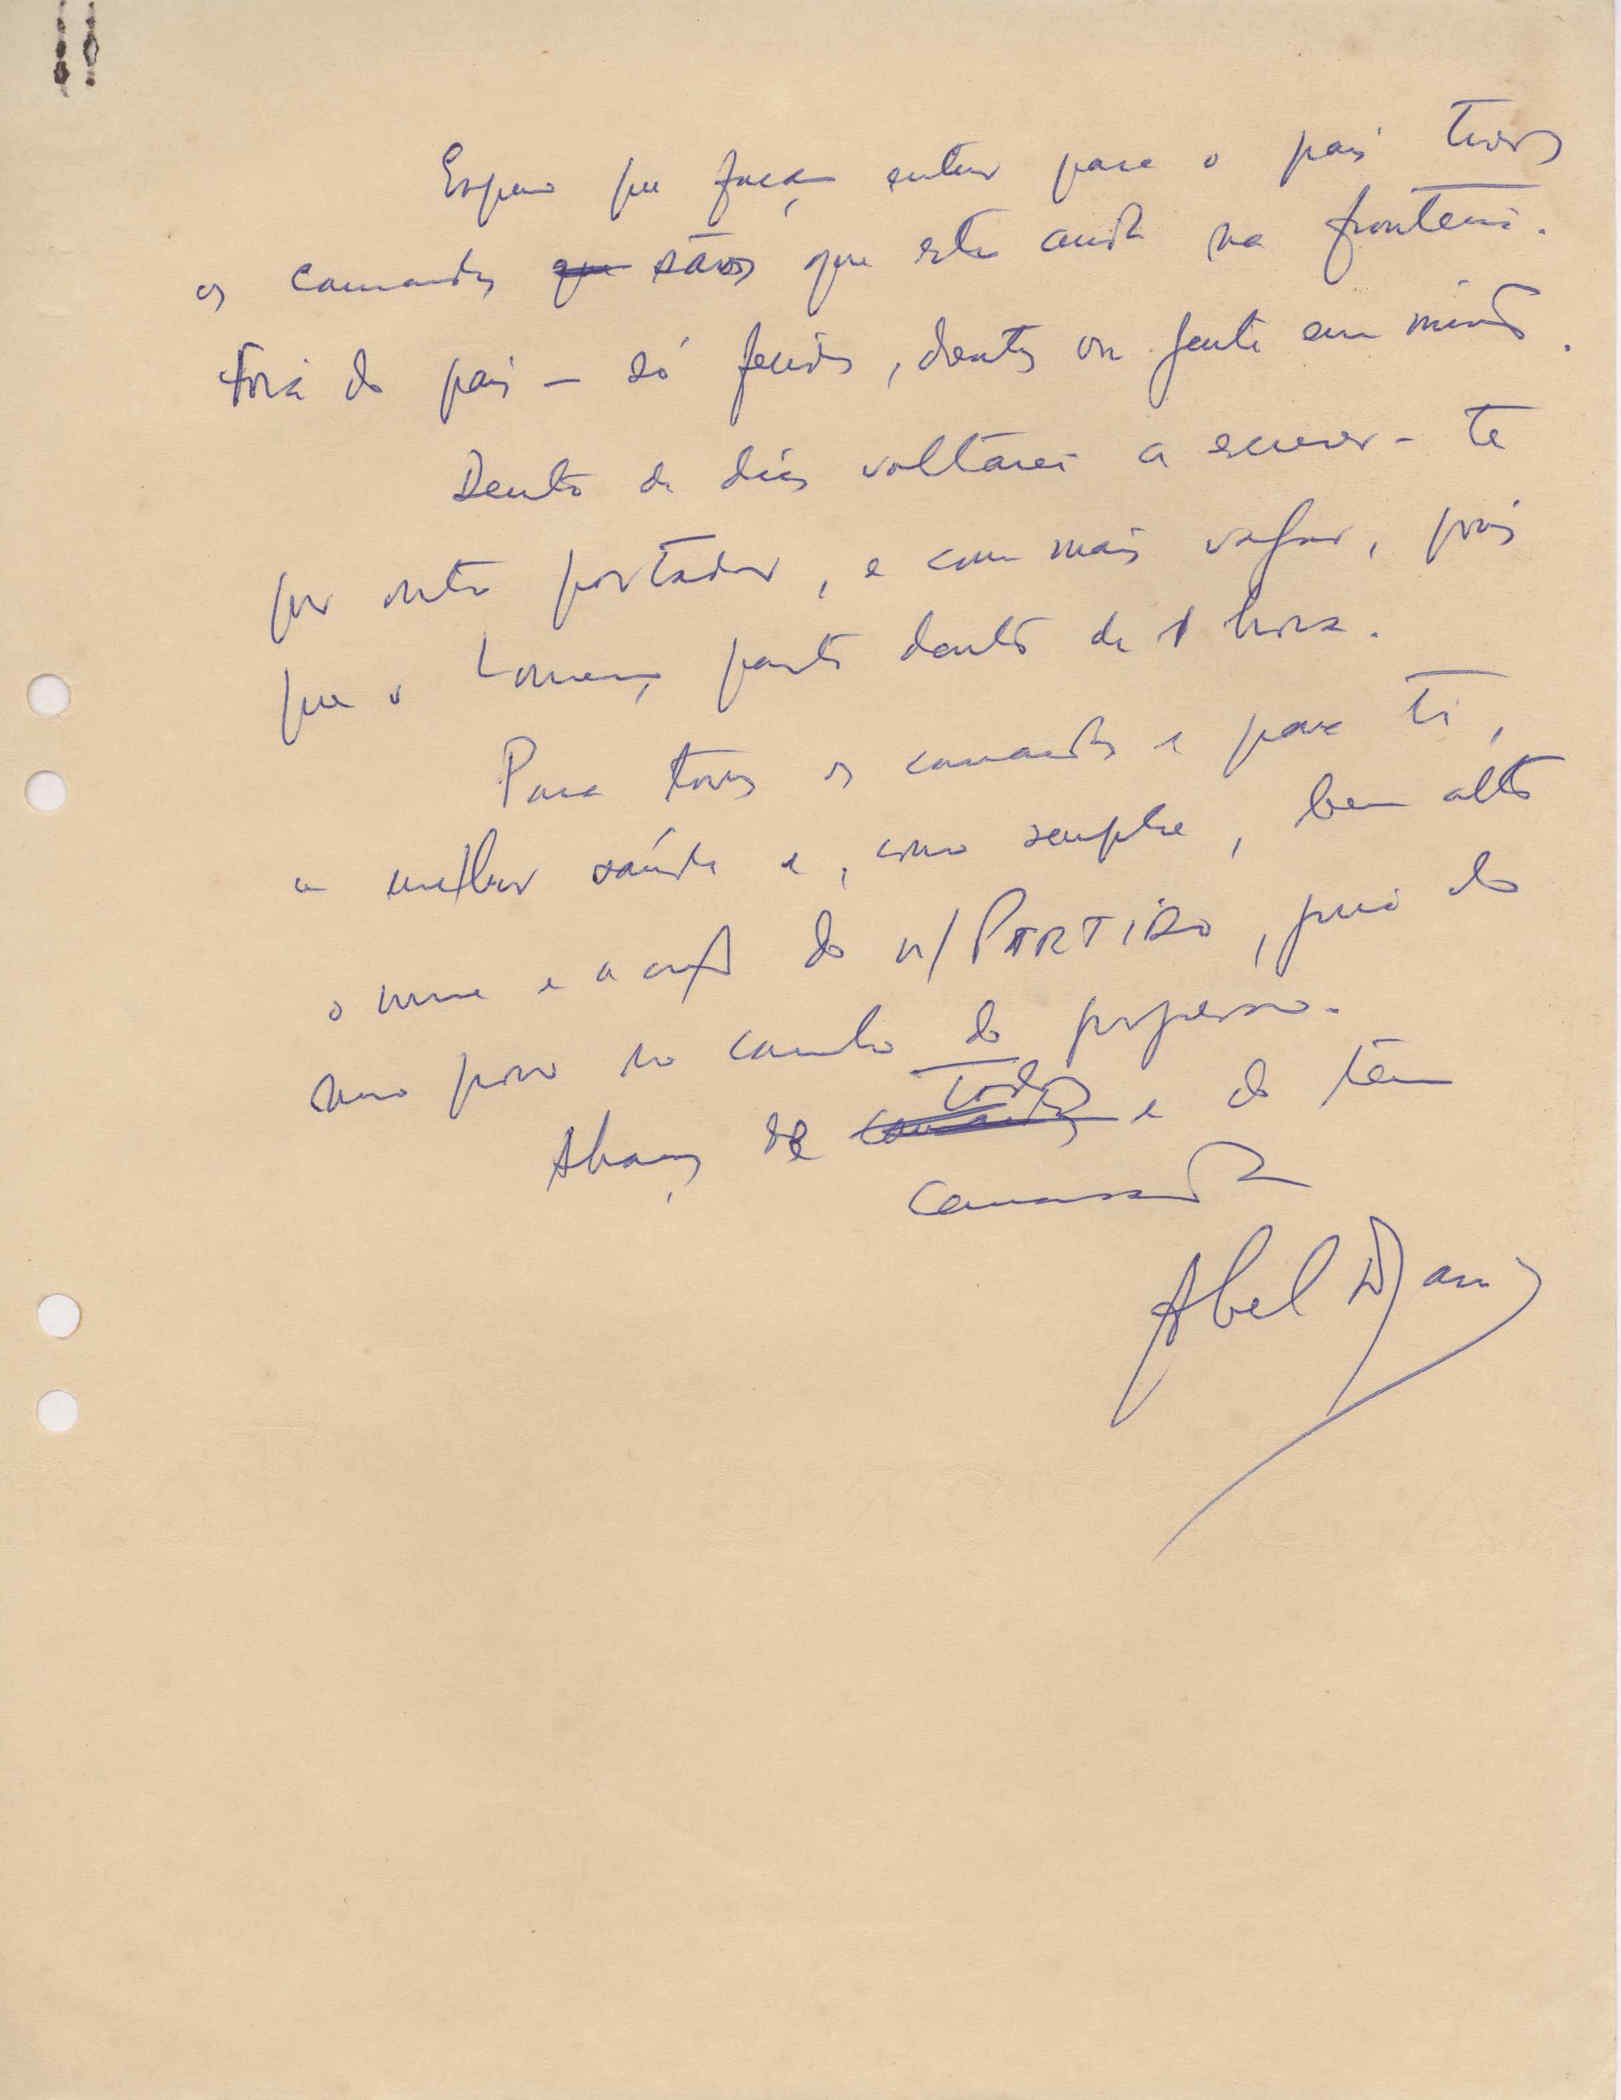 Espero que façam entrar para o país todos
os camaradas ~~que~~ sãos que estão ainda na fronteira.
Fora do país — só feridos, doentes ou gente em missão.
Dentro de dias voltarei a escrever-te
por outro portador, e com mais vagar, pois
que o Lourenço parte dentro de 1 hora.
Para todos os camaradas e para ti,
a melhor saúde e, como sempre, bem alto
o nome e a acção do n/ PARTIDO, guia do
nosso povo no caminho do progresso.
Abraços de todos e do teu
camarada
Abel Djassi